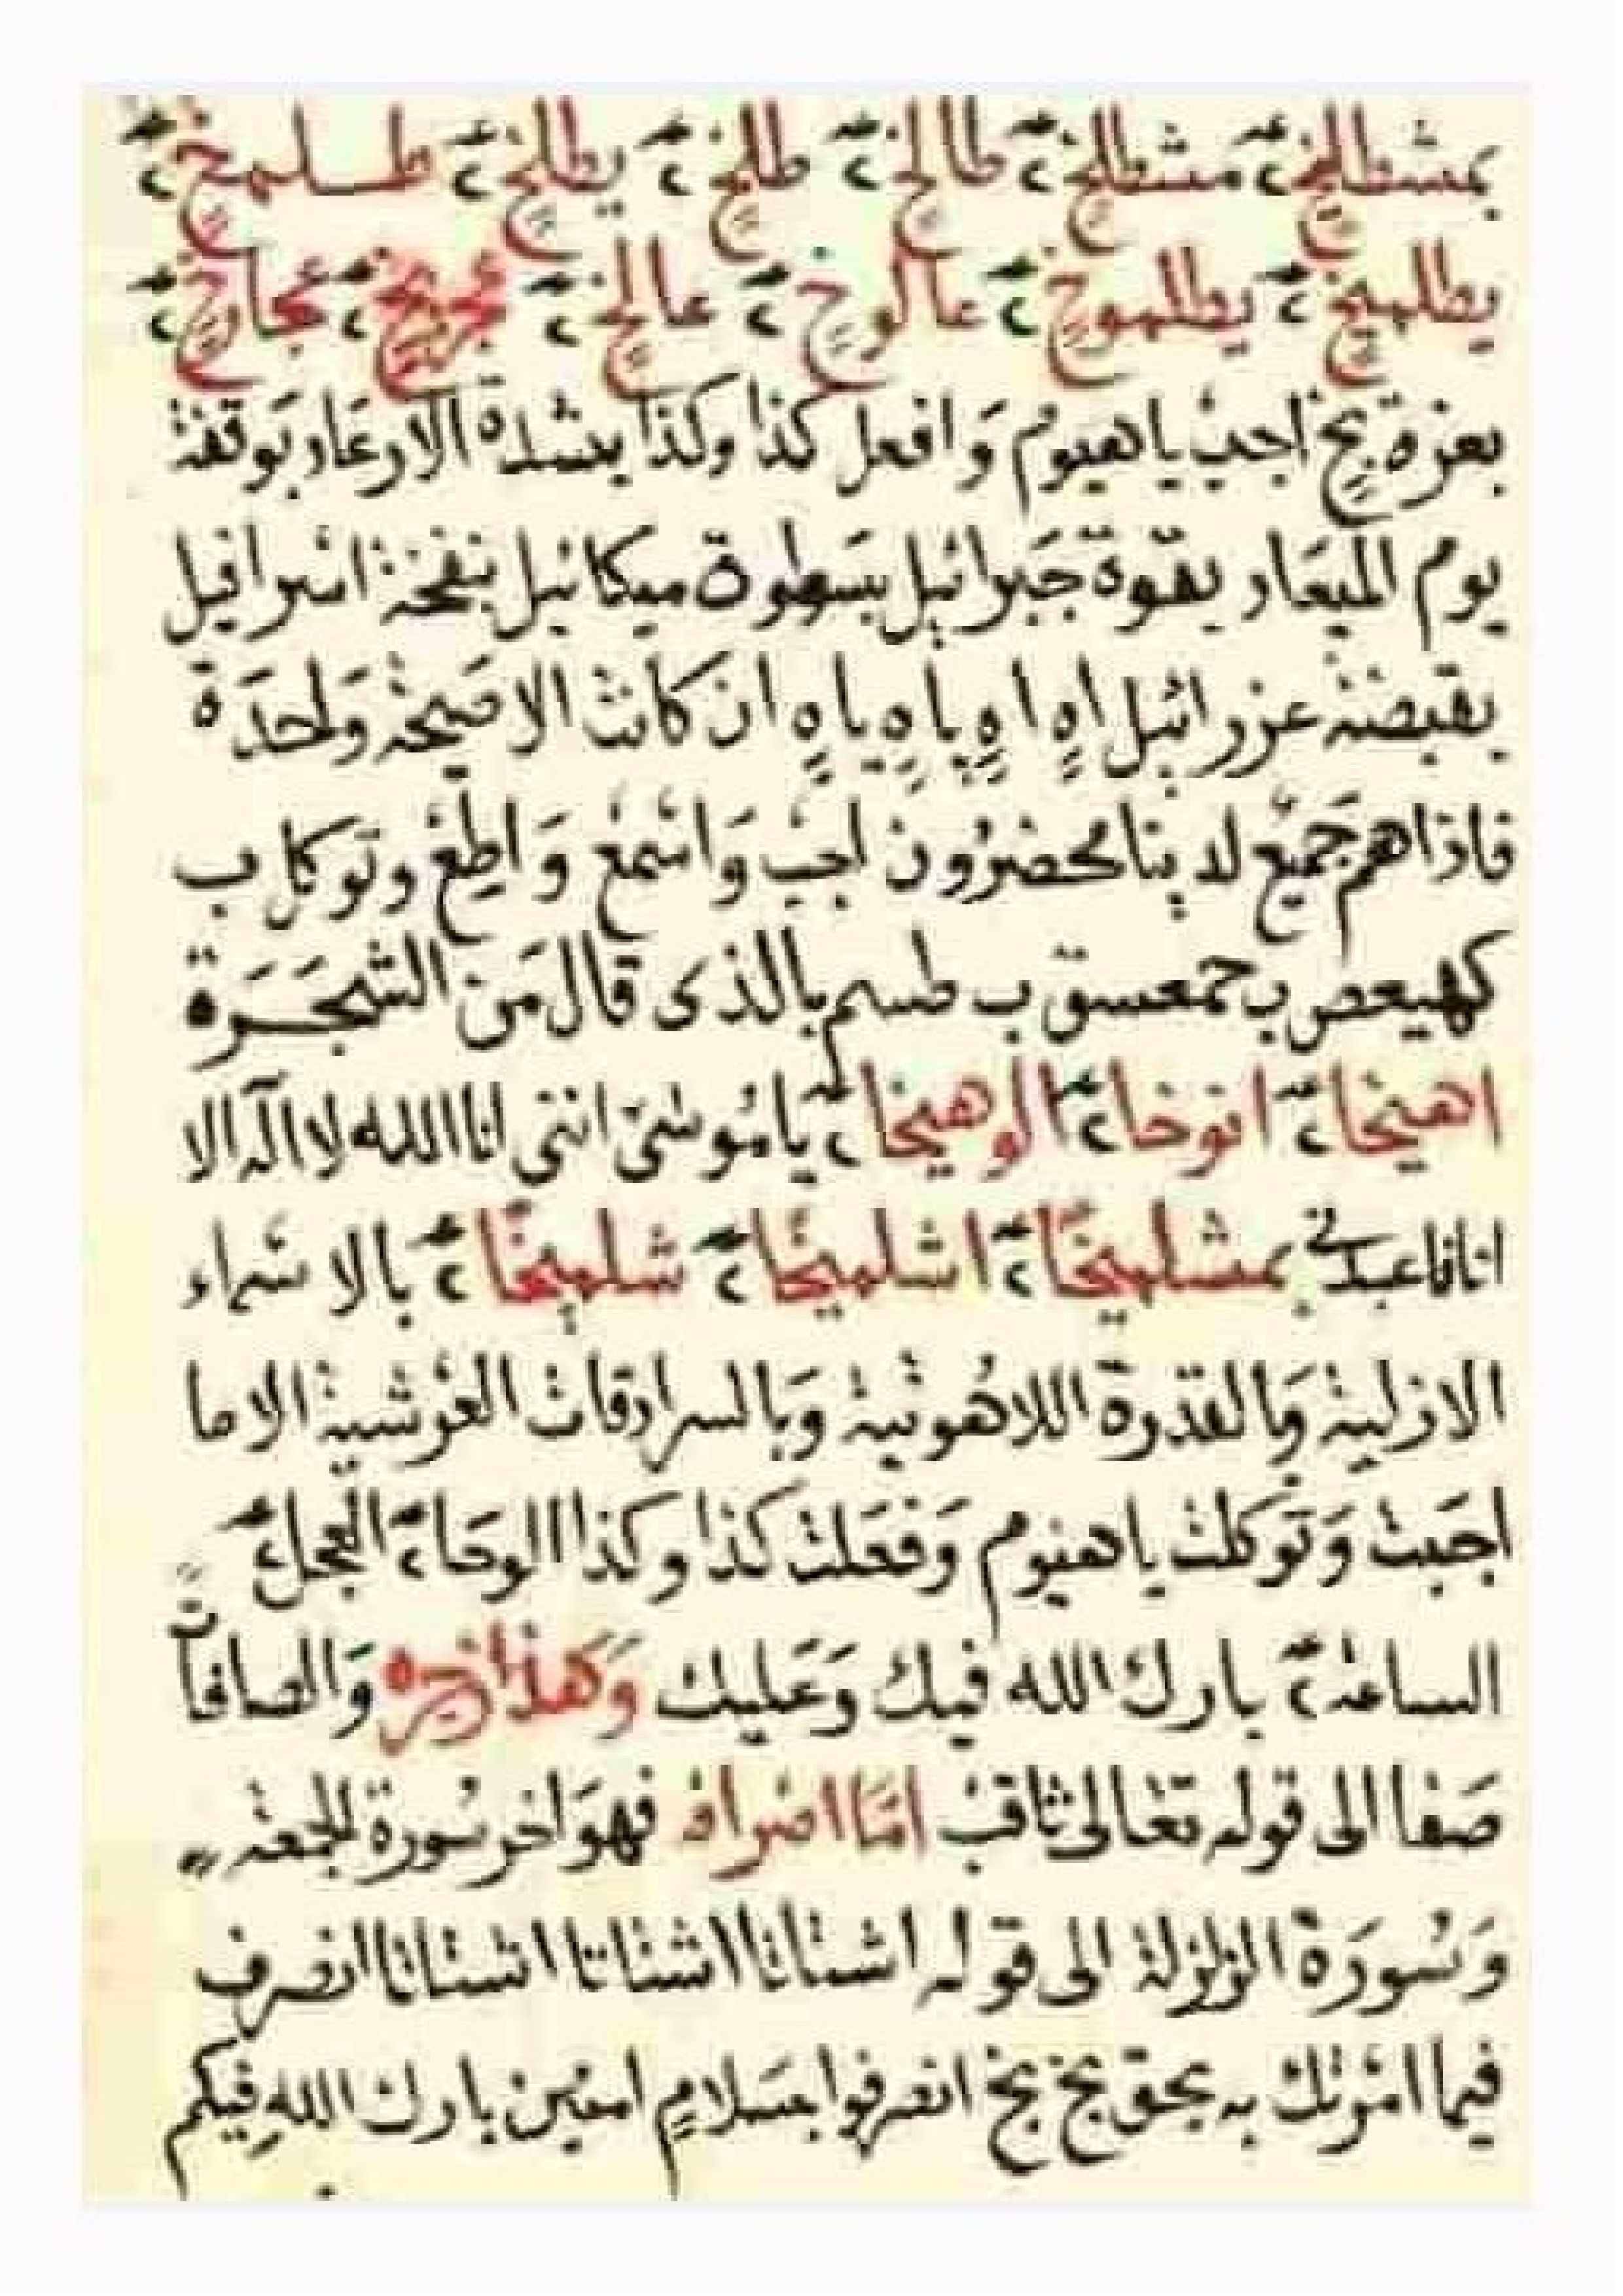 بمشطالخ ٢ مشطالخ ٢ طالخ ٢ طلخ ٢ يطلخ ٢ طلمخ ٢
يطلميخ ٢ يطلموخ ٢ عالوخ ٢ عالخ ٢ ٢ عجاوخ ٢
بعزة بخ اجب يا هيوم وَافعل كذا وكذا بشدة الارعاد بَوقفة
يوم الميعَار بقوة جَبرائيل بسَطوة ميكائيل بنفخة اسرافيل
بقبضة عزرائيل اهٍ اهٍ ياهٍ ياهٍ ان كانت الا صَيحة وَاحدَة
فاذا هم جَميع لدينا محضرُون اجب وَاسمع وَاطِع وتوكل ب
كهيعص ب حمعسق ب طسم بالذى قال مَن الشجَرَة
اهيخا ٢ انوخا ٢ الوهيخا ٢ يا مُوسَى اننى انا الله لا اله الا
انا فاعبدنى بمشلميخا ٢ اشلميخا ٢ شلميخا ٢ بالاسماء
الازلية وَبالقدرة اللاهُوتية وَبالسرادقات العَرشية الا ما
اجَبت وَتوَكلت يا هيوم وَفعَلت كذا وكذا الوحَا ٢ العجل ٢
الساعة ٢ بارك الله فيك وَعَليك وَهَذا زجره وَالصافات
صَفا الى قوله تعَالى ثاقب امَّا اصرافه فهوَ اخر سُورة الجمعة
وَسُورَة الزلزلة الى قوله اشتاتا اشتاتا اشتاتا انصرف
فيما امَرتك به بحق بخ بخ انصرفوا بسَلامٍ امين بارك اللهِ فيكم